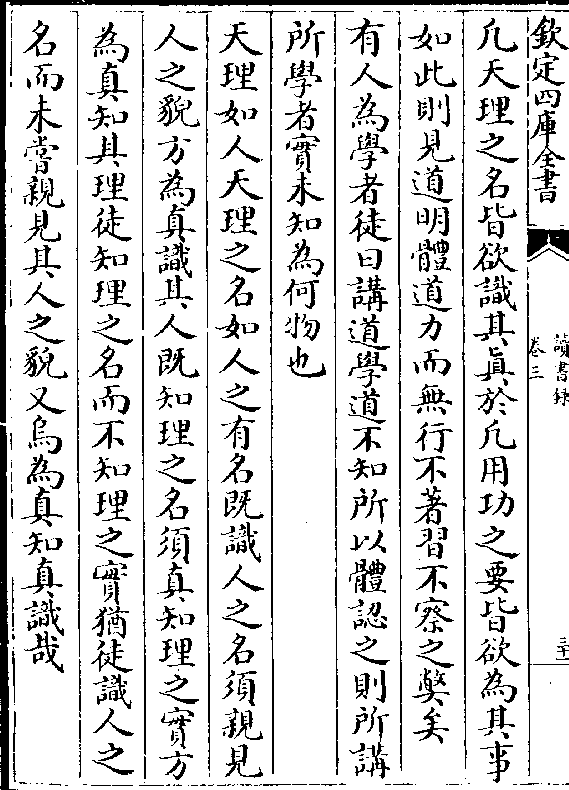 欽定四庫全書
讀書録
卷三
三十
凡天理之名皆欲識其真於凡用功之要皆欲為其事
如此則見道明體道力而無行不著習不察之弊矣
有人為學者徒曰講道學道不知所以體認之則所講
所學者實未知為何物也
天理如人天理之名如人之有名既識人之名須親見
人之貌方為真識其人既知理之名須真知理之實方
為真知其理徒知理之名而不知理之實猶徒識人之
名而未嘗親見其人之貌又烏為真知真識哉